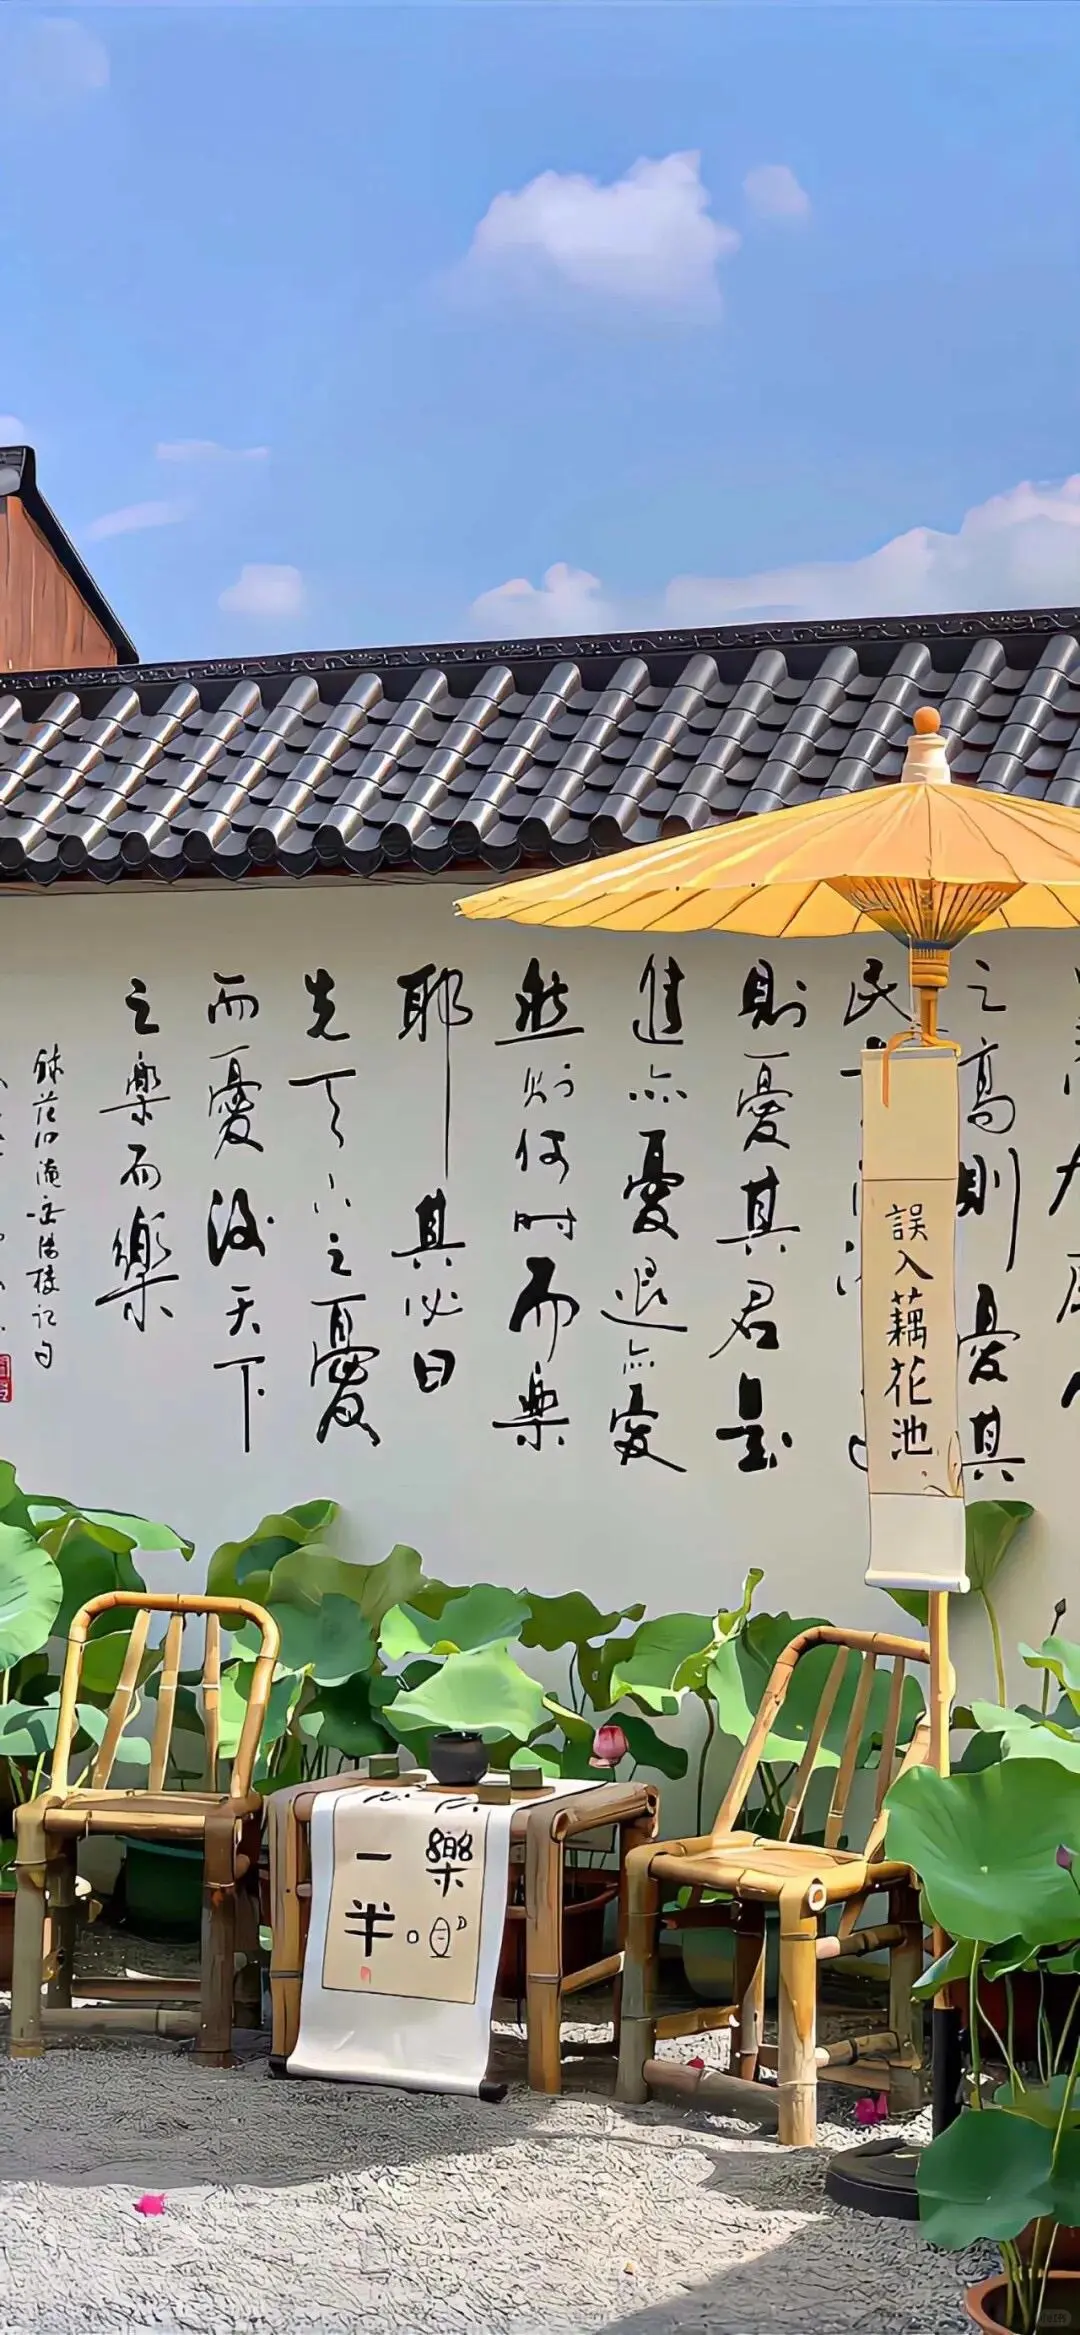 之高則憂其
民
則憂其君是
進亦憂退亦憂
然則何時而樂
耶其必曰
先天下之憂
而憂後天下
之樂而樂
錄范仲淹岳陽樓記句
誤入藕花池
樂
一半